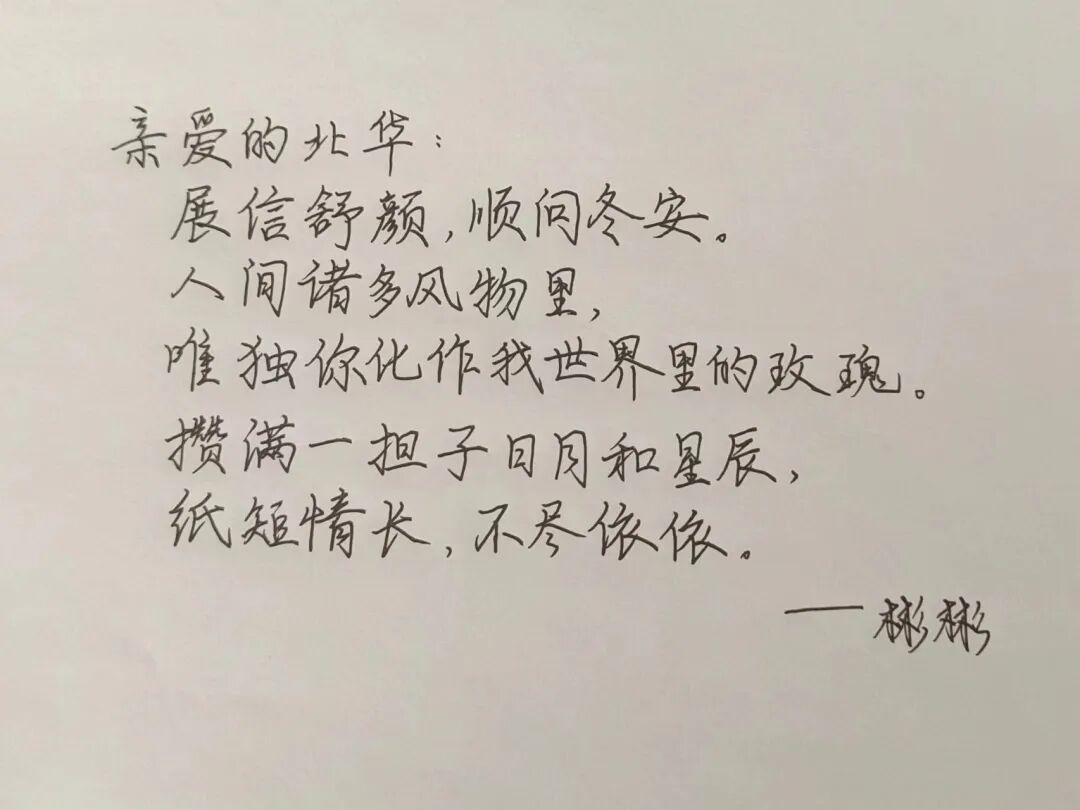 亲爱的北华：
展信舒颜，顺问冬安。
人间诸多风物里，
唯独你化作我世界里的玫瑰。
攒满一担子日月和星辰，
纸短情长，不尽依依。
——彬彬